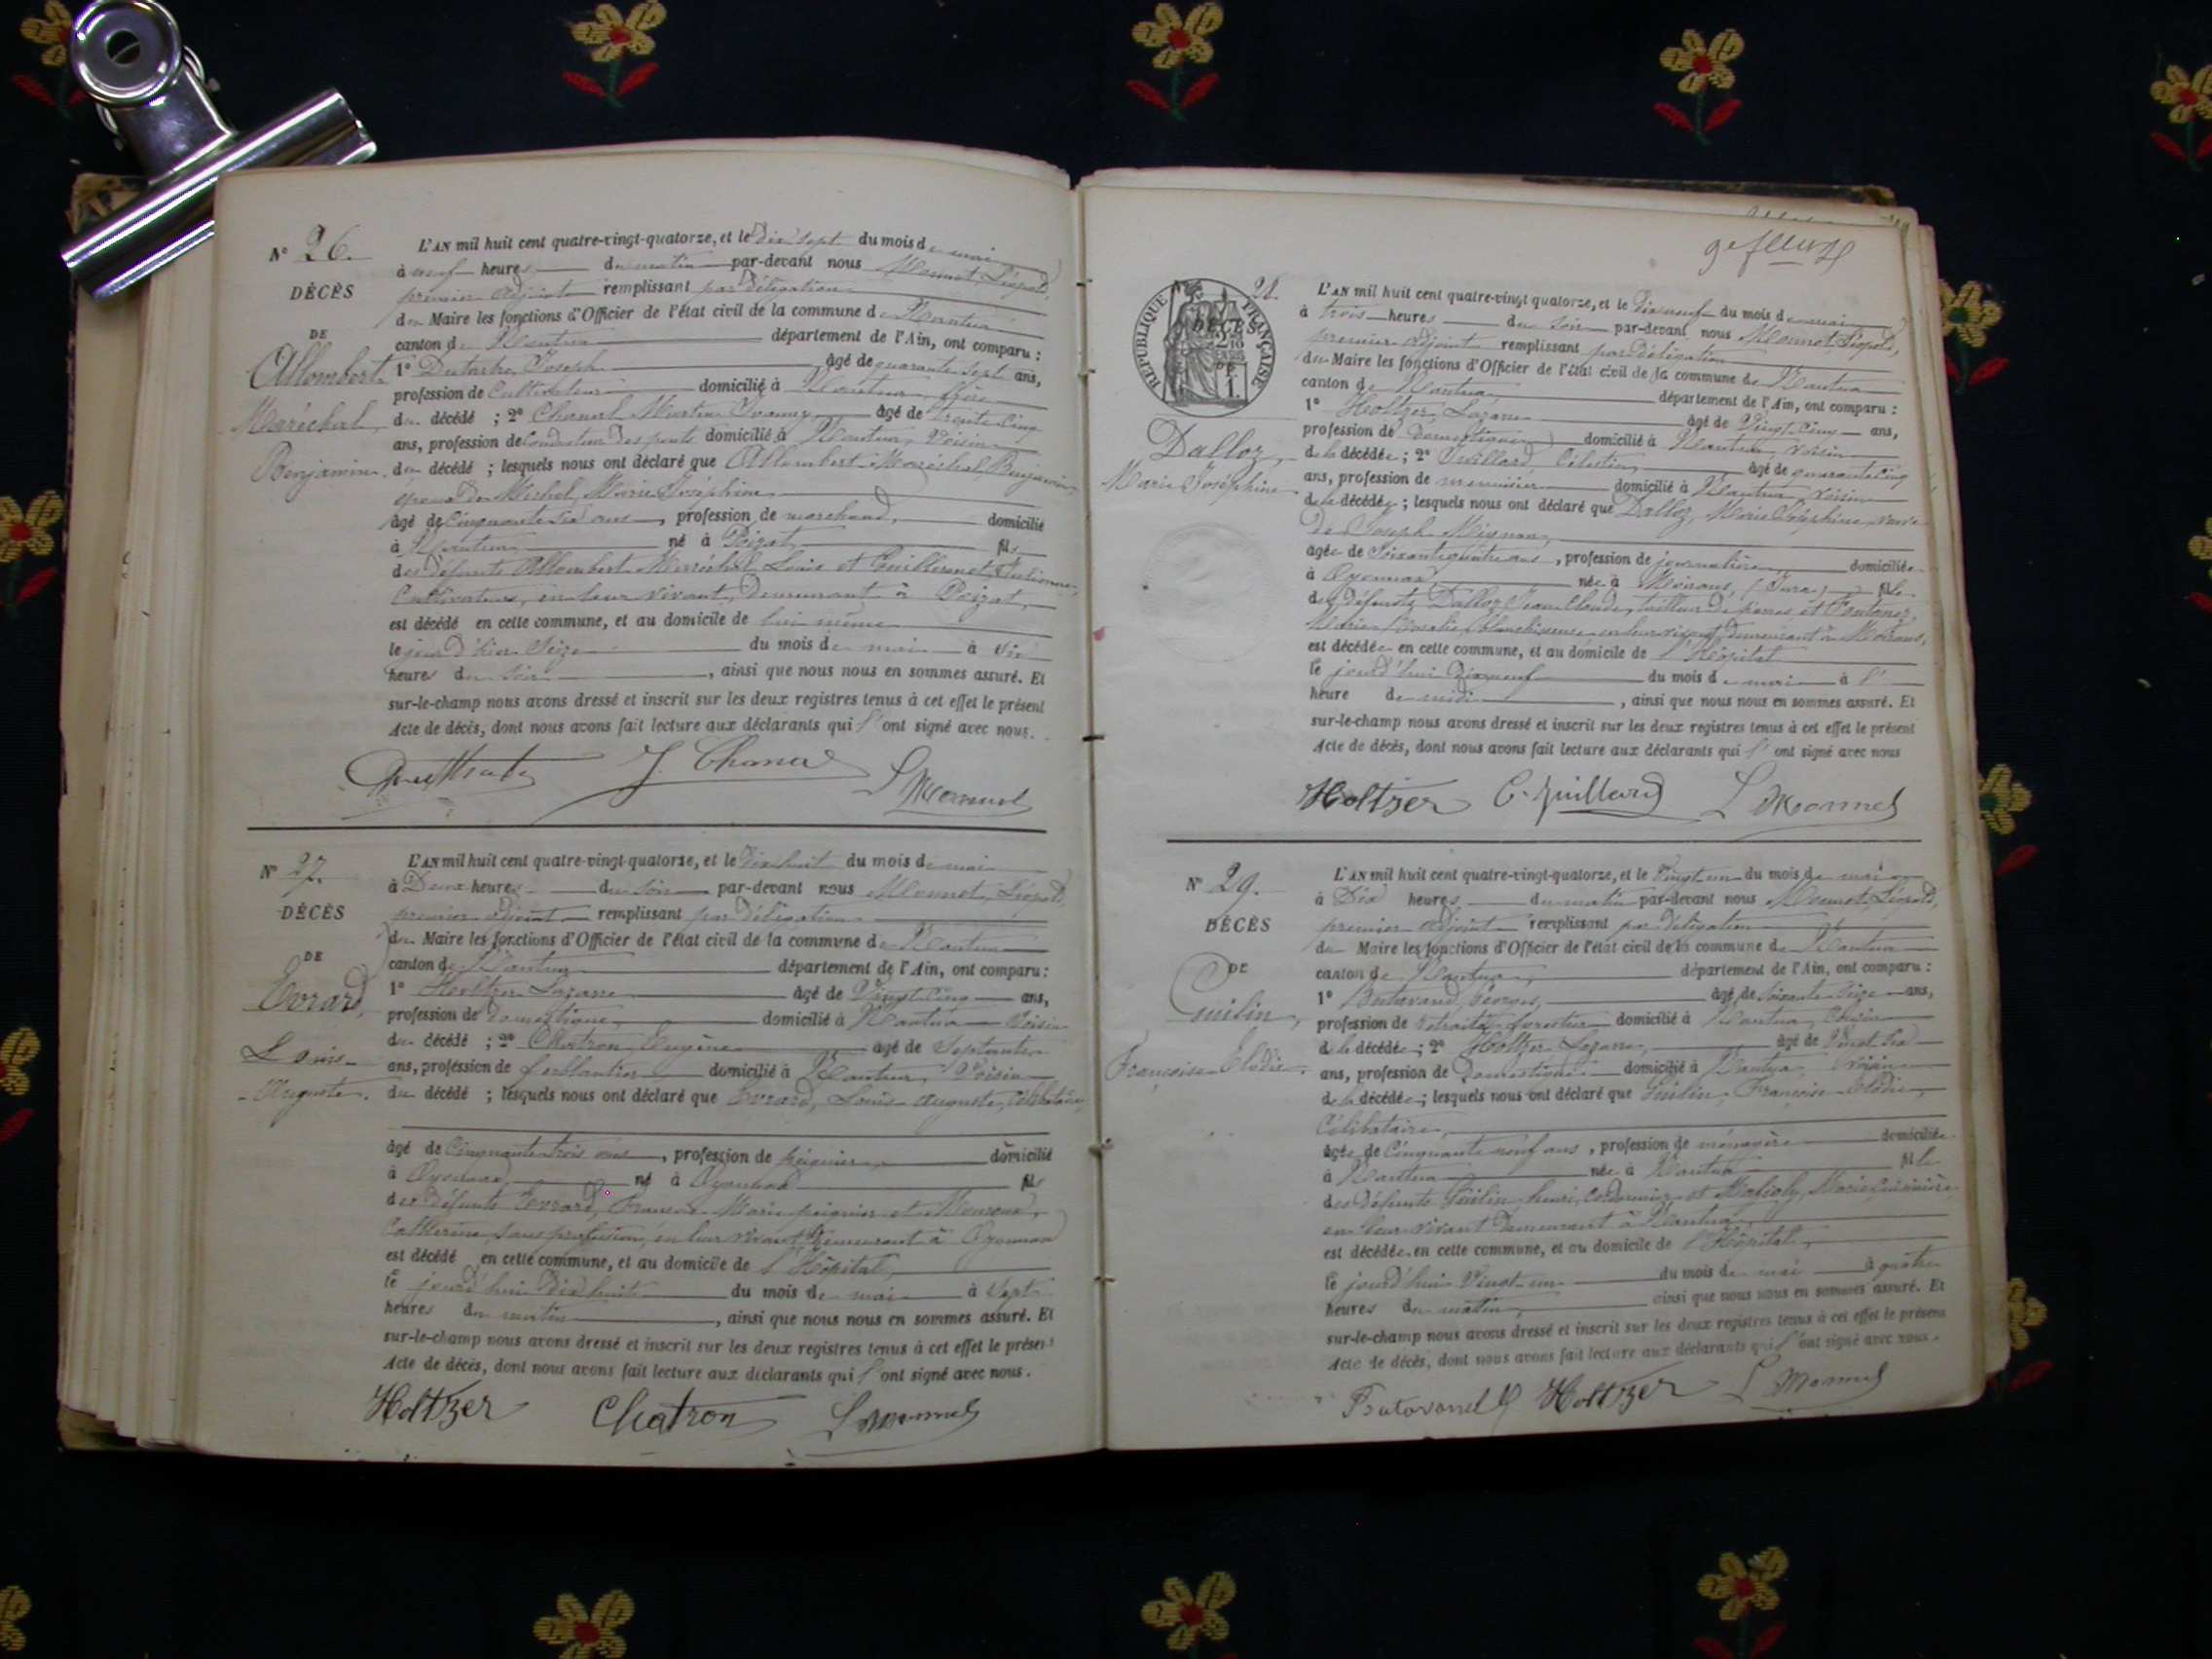 N° 26.
DÉCÈS
DE
Allombert
Maréchal
Benjamin.
L'AN mil huit cent quatre-vingt-quatorze, et le dix sept du mois de mai
à neuf heures du matin par-devant nous Monnet, Léopold,
premier adjoint remplissant par délégation
du Maire les fonctions d'Officier de l'état civil de la commune de Nantua
canton de Nantua département de l'Ain, ont comparu :
1° Joseph âgé de quarante sept ans,
profession de Cultivateur domicilié à Nantua,
du décédé ; 2° Chanal âgé de trente cinq
ans, profession de Conducteur des ponts domicilié à Nantua, Voisin
du décédé ; lesquels nous ont déclaré que Allombert-Maréchal Benjamin
époux de Michel, Marie Joséphine
âgé de Cinquante six ans, profession de marchand, domicilié
à Nantua né à Poizat fils
des défunts Allombert Maréchal Louis et
Cultivateurs, en leur vivant, demeurant à Poizat,
est décédé en cette commune, et au domicile de lui même
le jour d'hier Seize du mois de mai à six
heures du soir, ainsi que nous nous en sommes assuré. Et
sur-le-champ nous avons dressé et inscrit sur les deux registres tenus à cet effet le présent
Acte de décès, dont nous avons fait lecture aux déclarants qui l'ont signé avec nous.
J. Chanal
L Monnet
N° 27.
DÉCÈS
DE
Evrard,
Louis-
Auguste.
L'AN mil huit cent quatre-vingt-quatorze, et le dix huit du mois de mai
à Deux heures du soir par-devant nous Monnet, Léopold,
premier adjoint remplissant par délégation
du Maire les fonctions d'Officier de l'état civil de la commune de Nantua
canton de Nantua département de l'Ain, ont comparu :
1° Holtzer Lazare âgé de Vingt cinq ans,
profession de domestique domicilié à Nantua Voisin
du décédé ; 2° Chatron, Eugène âgé de Septante
ans, profession de ferblantier domicilié à Nantua, Voisin
du décédé ; lesquels nous ont déclaré que Evrard, Louis-Auguste, Célibataire,
âgé de Cinquante trois ans, profession de peignier domicilié
à Oyonnax, né à Oyonnax fils
des défunts Evrard, François Marie peignier et
Catherine, sans profession, en leur vivant demeurant à Oyonnax
est décédé en cette commune, et au domicile de l'Hôpital,
le jourd'hui Dix huit du mois de mai à Sept
heures du matin, ainsi que nous nous en sommes assuré. Et
sur-le-champ nous avons dressé et inscrit sur les deux registres tenus à cet effet le présent
Acte de décès, dont nous avons fait lecture aux déclarants qui l'ont signé avec nous.
Holtzer Chatron L Monnet
28.
RÉPUBLIQUE FRANÇAISE
Dalloz,
Marie Joséphine
L'AN mil huit cent quatre-vingt quatorze, et le Dix neuf du mois de mai
à trois heures du soir par-devant nous Monnet, Léopold,
premier adjoint remplissant par délégation
du Maire les fonctions d'Officier de l'état civil de la commune de Nantua
canton de Nantua, département de l'Ain, ont comparu :
1° Holtzer Lazare âgé de Vingt-Cinq ans,
profession de Domestique domicilié à Nantua, Voisin
de la décédée ; 2° Célestin, âgé de quarante cinq
ans, profession de menuisier domicilié à Nantua, Voisin
de la décédée ; lesquels nous ont déclaré que Dalloz, Marie Joséphine, veuve
de Joseph
âgée de Soixante quatre ans, profession de journalière, domiciliée
à Oyonnax née à Moirans, (Jura) fille
des défunts Dalloz Jean Claude, tailleur de pierres et
Marie Rosalie, blanchisseuse, en leur vivant demeurant à Moirans,
est décédée en cette commune, et au domicile de l'Hôpital
le jourd'hui Dix neuf du mois de mai à l'
heure de midi, ainsi que nous nous en sommes assuré. Et
sur-le-champ nous avons dressé et inscrit sur les deux registres tenus à cet effet le présent
Acte de décès, dont nous avons fait lecture aux déclarants qui l'ont signé avec nous
Holtzer L Monnet
N° 29.
DÉCÈS
DE
Guilin,
Françoise-Elodie.
L'AN mil huit cent quatre-vingt-quatorze, et le Vingt un du mois de mai
à Dix heures du matin par-devant nous Monnet, Léopold,
premier adjoint remplissant par délégation
du Maire les fonctions d'Officier de l'état civil de la commune de Nantua
canton de Nantua, département de l'Ain, ont comparu :
1° Georges, âgé de soixante-Seize ans,
profession de retraité forestier domicilié à Nantua, Voisin
de la décédée ; 2° Holtzer Lazare, âgé de Vingt
ans, profession de Domestique domicilié à Nantua, Voisin
de la décédée ; lesquels nous ont déclaré que Guilin, Françoise-Elodie,
Célibataire,
âgée de Cinquante neuf ans, profession de ménagère domiciliée
à Nantua née à Nantua fille
des défunts Guilin, henri, Cordonnier et Marie, Cuisinière
en leur vivant demeurant à Nantua,
est décédée en cette commune, et au domicile de l'Hôpital,
le jourd'hui Vingt-un du mois de mai à quatre
heures du matin, ainsi que nous nous en sommes assuré. Et
sur-le-champ nous avons dressé et inscrit sur les deux registres tenus à cet effet le présent
Acte de décès, dont nous avons fait lecture aux déclarants qui l'ont signé avec nous.
Holtzer L Monnet